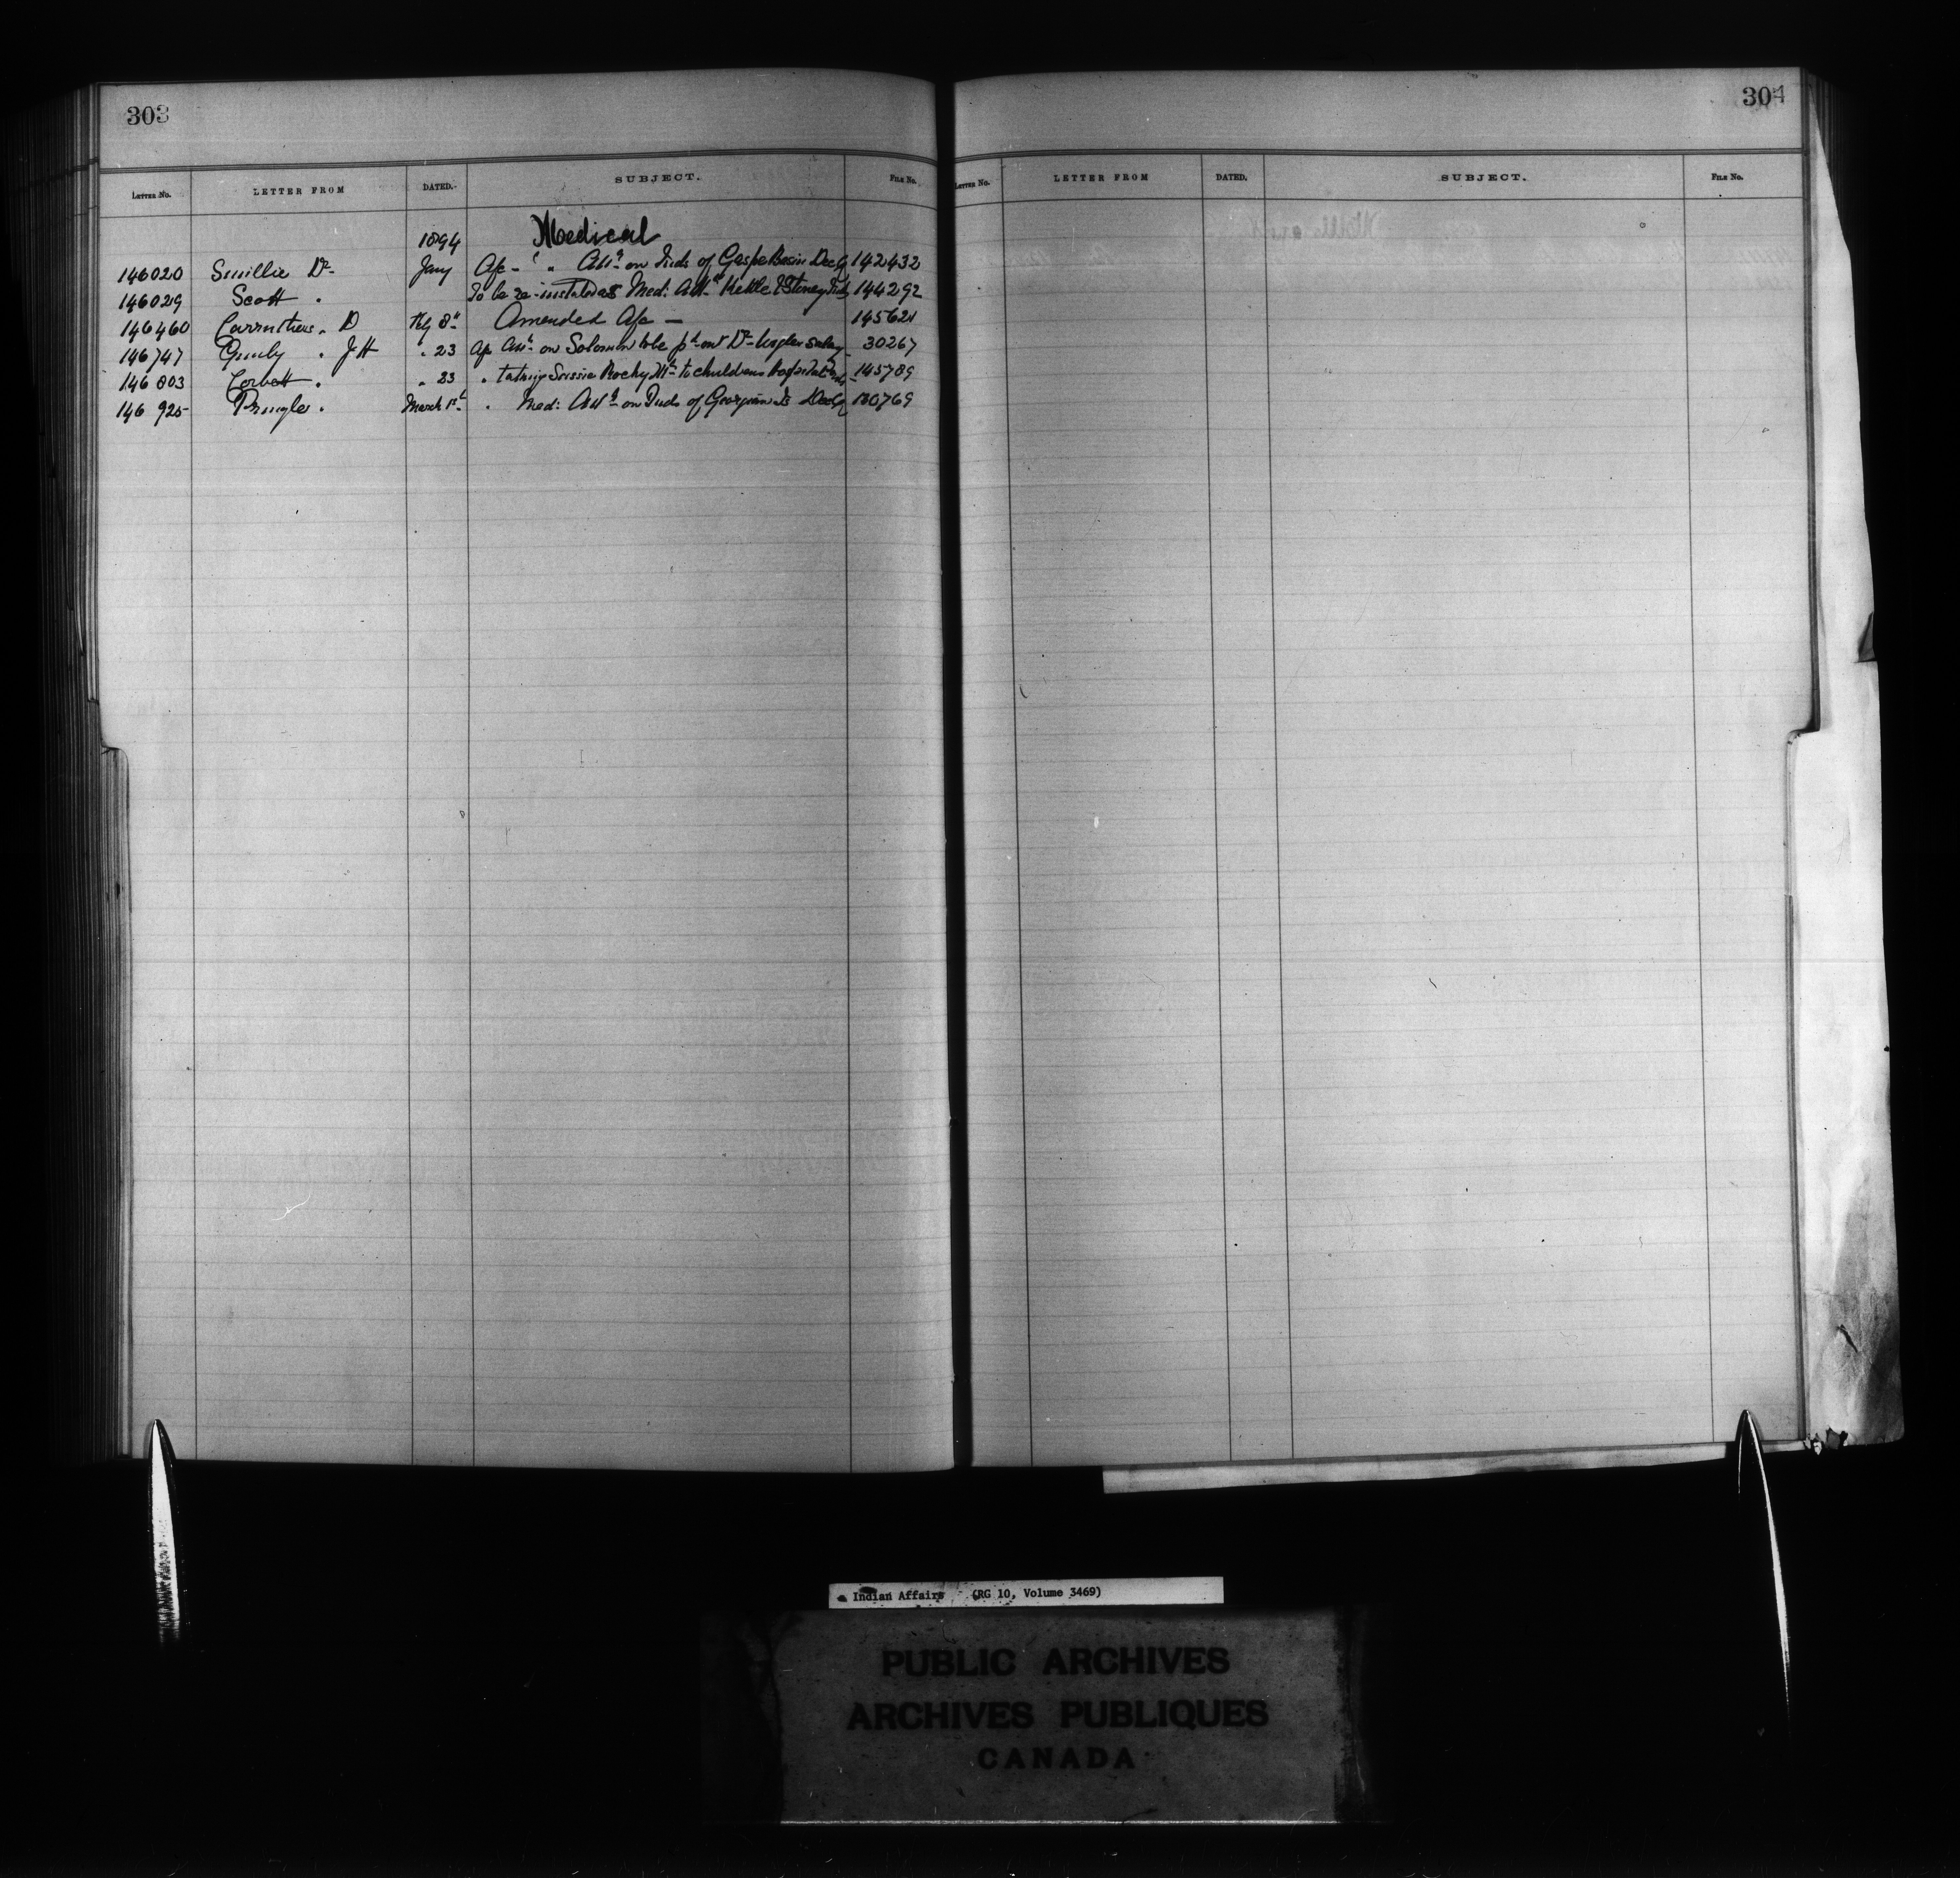 303
304
LETTER NO. LETTER FROM DATED. SUBJECT. FILE No.
LETTER NO. LETTER FROM DATED. SUBJECT. FILE No.
1894 Medical
146020 Smillie Dr Jany A/c - " " on Inds of Gaspe Basin Dec 142432
146029 Scott " To be re-instated as Med: Kettle & Stoney Pt 144292
146460 Carruthers " D Feby 8th Amended A/c — 145621
146747 " JH " 23 A/c on Solomon to be pd out Dr salary 30267
146803 Corbett " " 23 " taking Susie Rocky Mt to childrens Hospital 145789
146925 Pringle " March 1st " Med: on Inds of Georgina Is Dec 130769
Indian Affairs (RG 10, Volume 3469)
PUBLIC ARCHIVES
ARCHIVES PUBLIQUES
CANADA